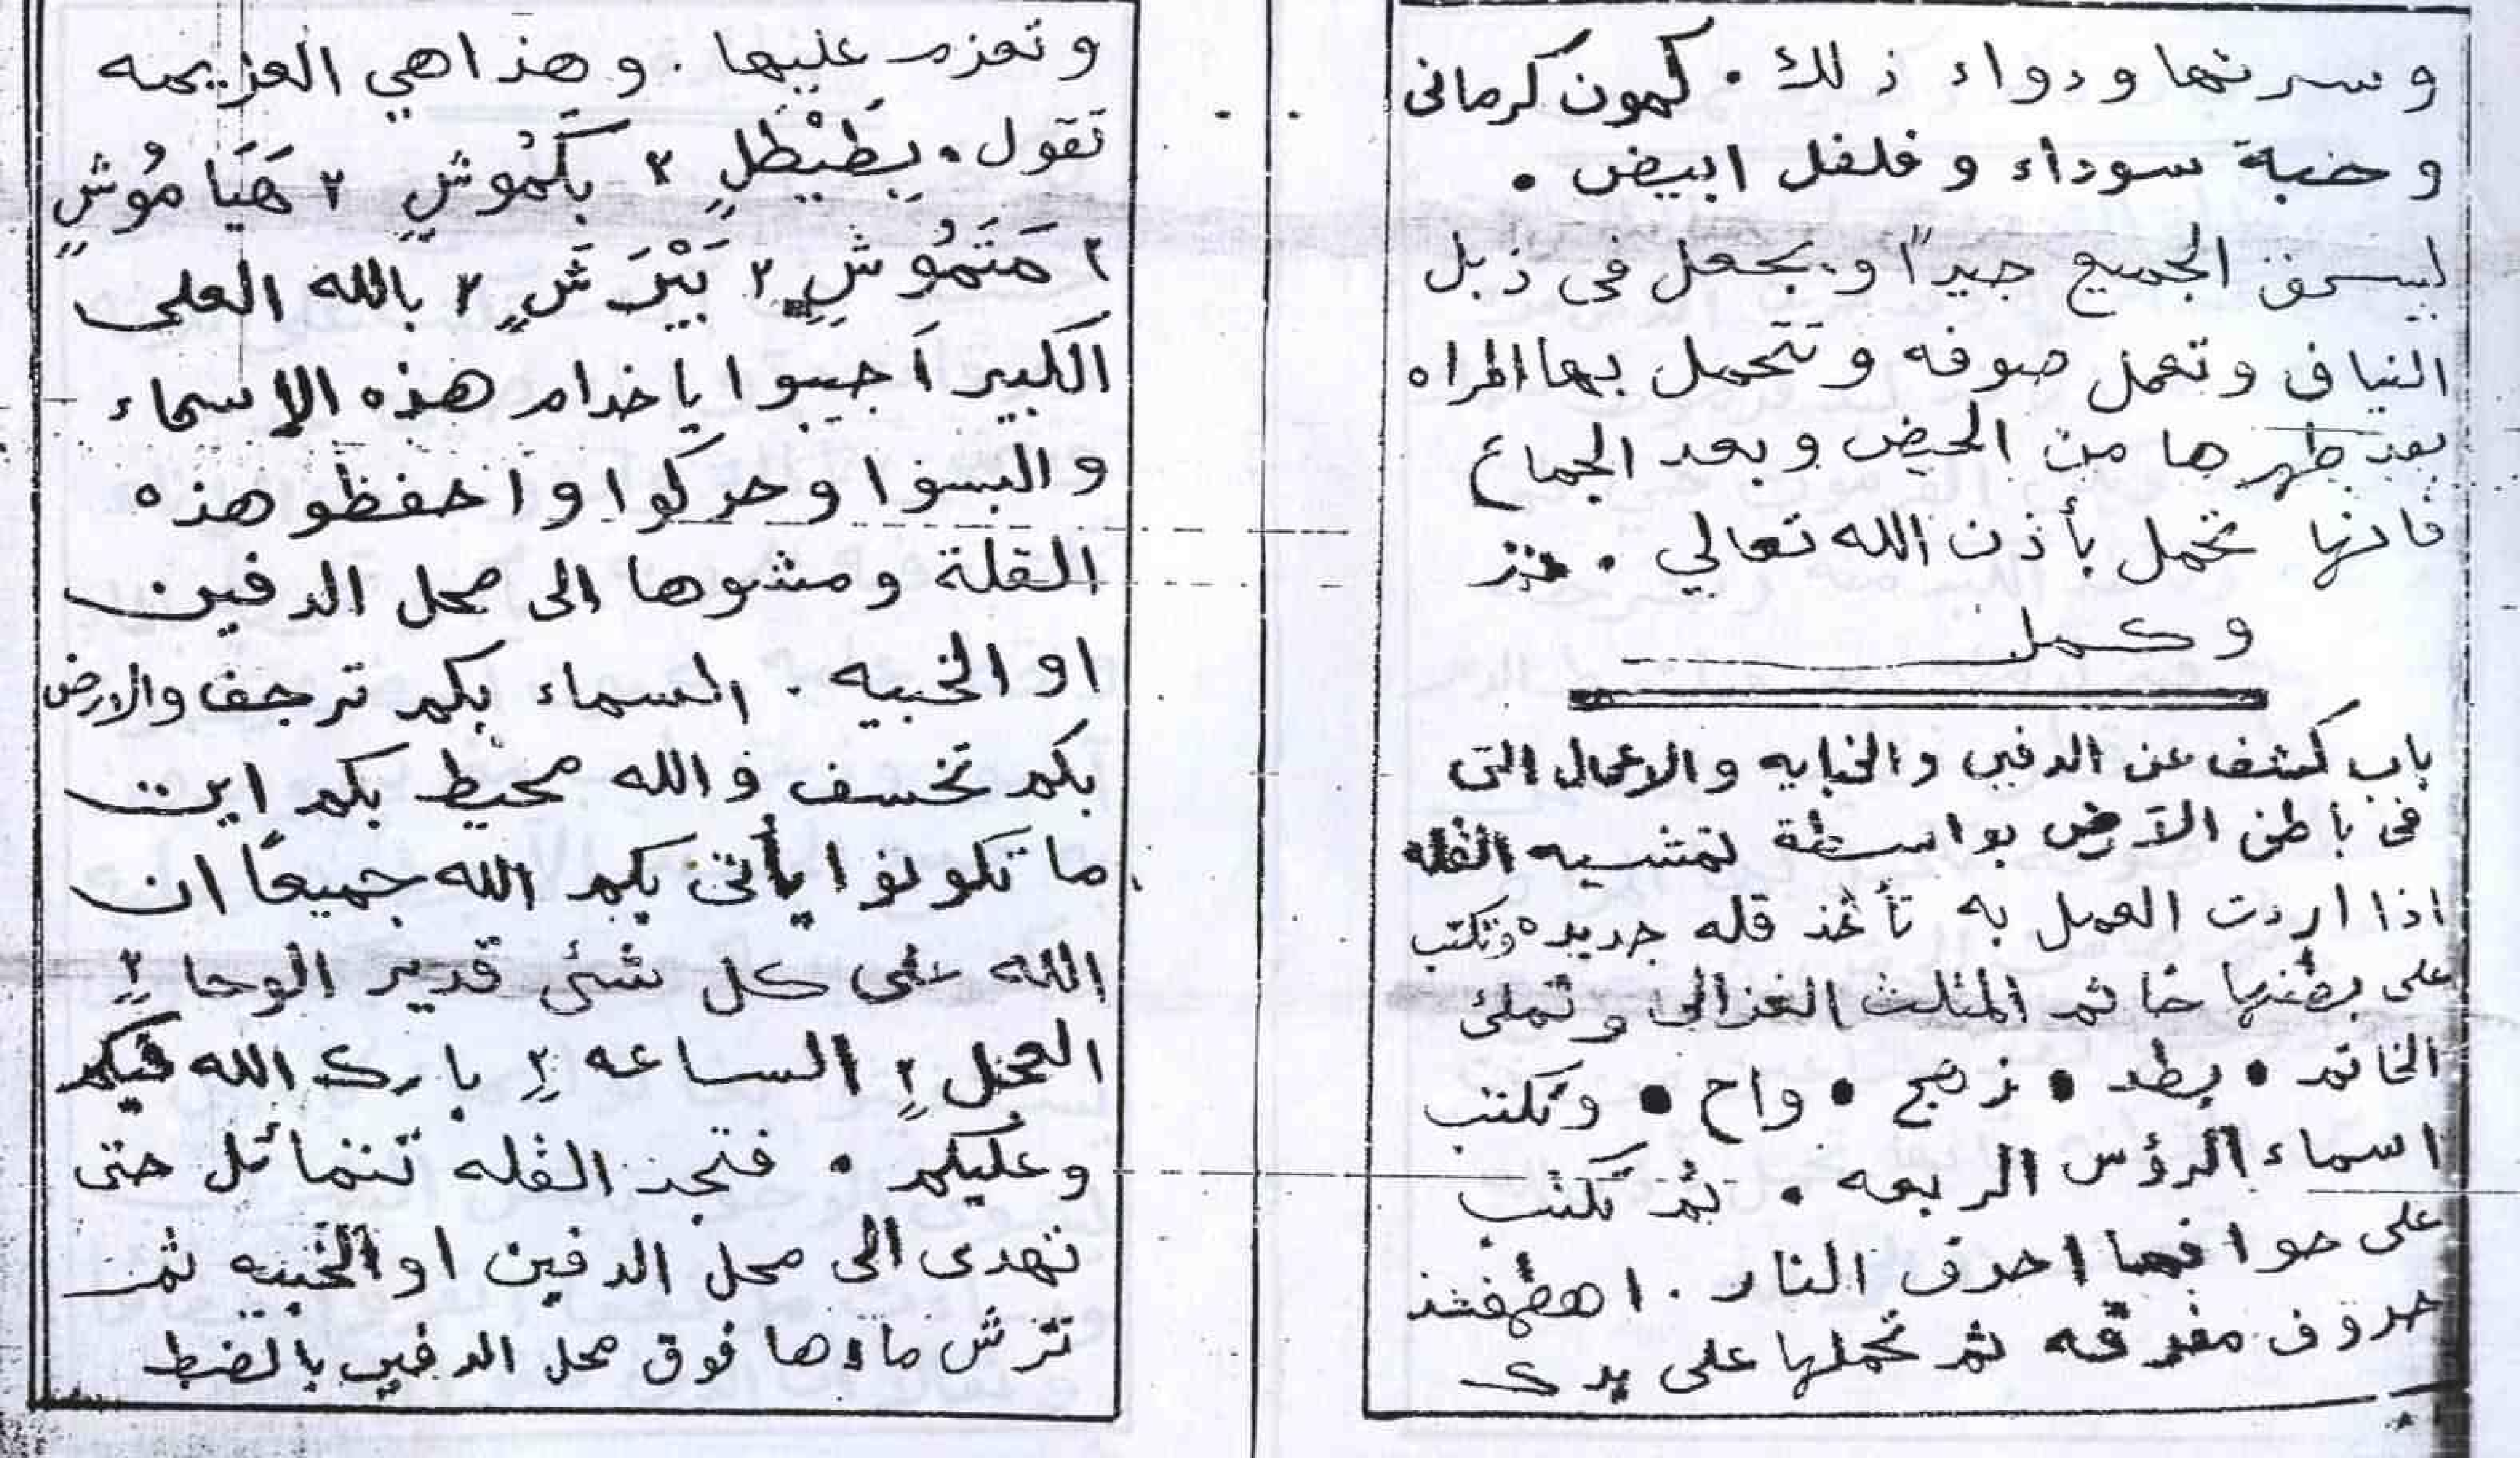 وسرتها ودواء ذلك . كمون كرمانى
وحبة سوداء وفلفل ابيض .
ليسحق الجميع جيداً ويجعل فى ذبل
النياق وتعمل صوفه وتتحمل بها المراه
بعد طهرها من الحيض وبعد الجماع
فانها تحمل بأذن الله تعالي .
وكمل
باب كشف عن الدفين والخبايه والاعمال التى
فى باطن الآرض بواسطة تمشيه القله
اذا اردت العمل به تأخذ قله جديده وتكتب
على بطنها خاتم المثلث الغزالى وتملئ
الخاتم • بطد • زهج • واح • وتكتب
اسماء الرؤس الربعه . ثم تكتب
على حوافها احرف النار . اهطمفشذ
حروف مفرقه ثم تحملها على يدك
وتعزم عليها . وهذا هي العزيمه
تقول . بِطَيْطَلٍ ٢ بكَمُوشٍ ٢ هَيَا مُوشٍ
٢ هَتَمُوشٍ ٢ بَيْرَشٍ ٢ بالله العلى
الكبير اَجيبوا ياخدام هذه الاسماء
والبسوا وحركوا واحفظو هذه
القلة ومشوها الى محل الدفين
او الخبيه . السماء بكم ترجف والارض
بكم تخسف والله محيط بكم اين
ما تكونوا يأتى بكم الله جميعًا ان
الله على كل شئى قدير الوحا ٢
العجل ٢ الساعه ٢ بارك الله فيكم
وعليكم . فتجد القله تتمائل حتى
تهدى الى محل الدفين او الخبيه ثم
ترش ماءها فوق محل الدفين بالضبط